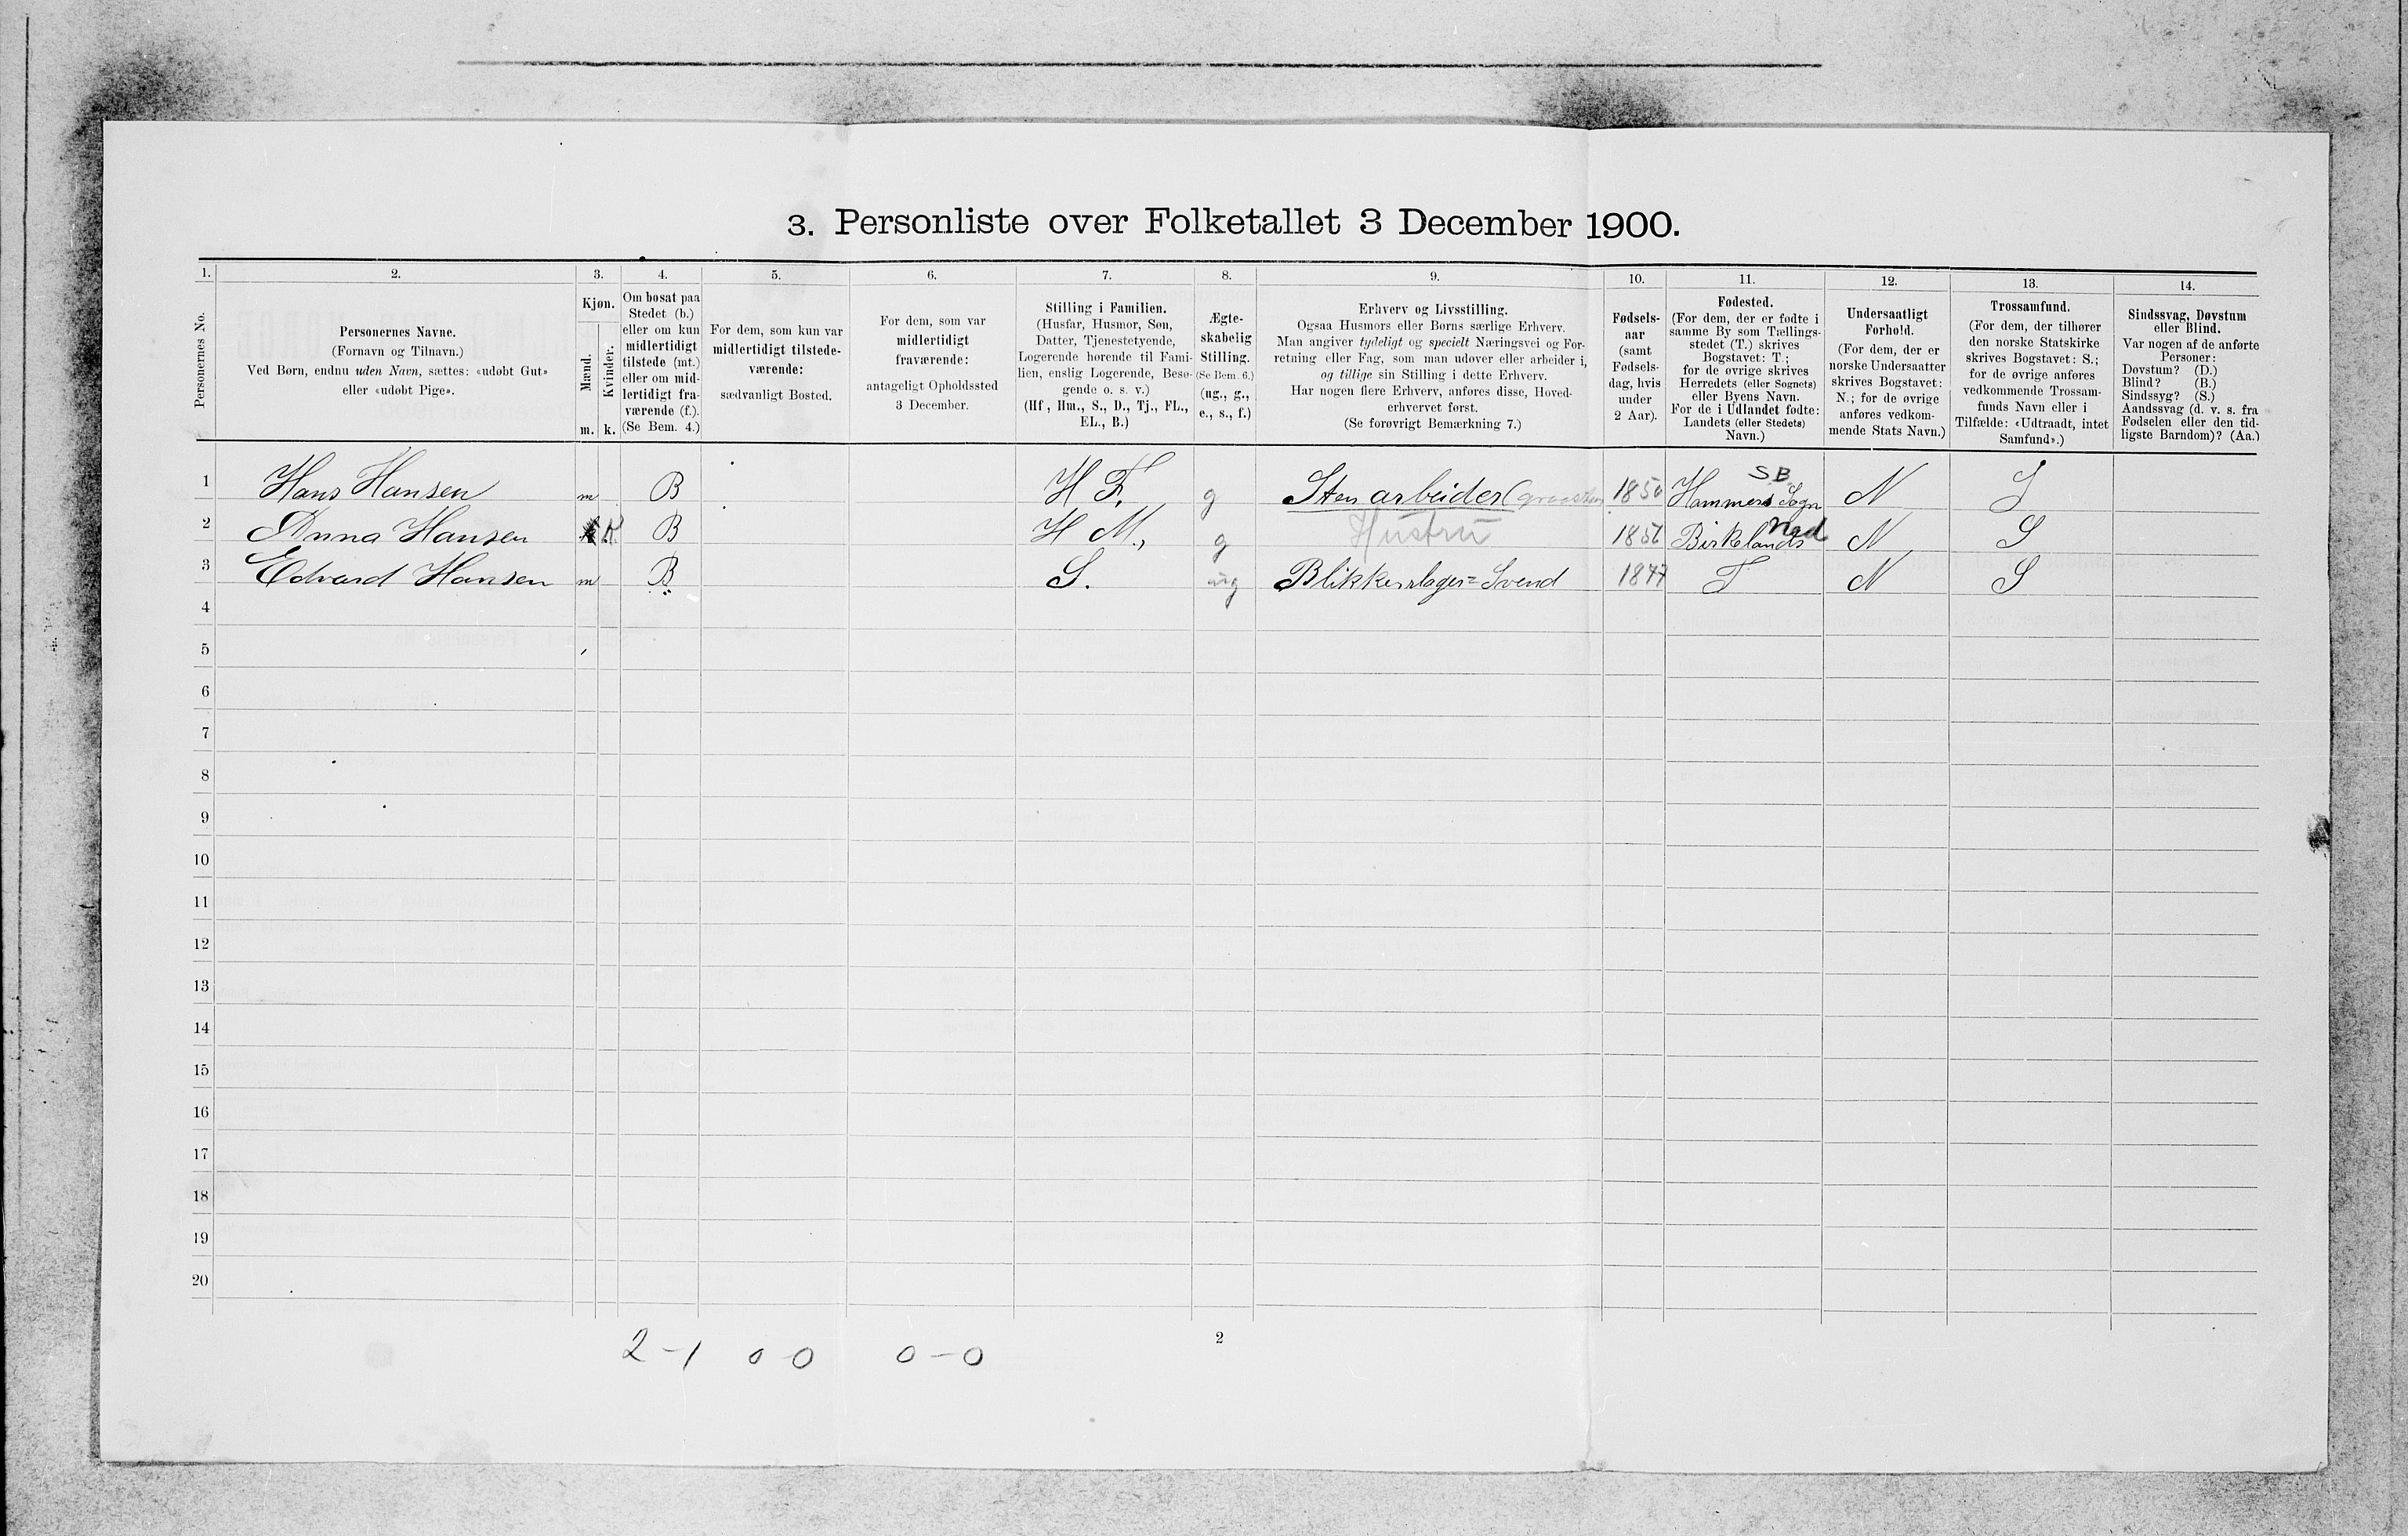 3. Personliste over Folketallet 3 December 1900.
1. 2. 3. 4. 5. 6. 7. 8. 9. 10. 11. 12. 13. 14.
Personernes No.
Personernes Navne.
(Fornavn og Tilnavn.)
Ved Børn, endnu uden Navn, sættes: «udøbt Gut»
eller «udøbt Pige».
Kjøn.
Mænd.
Kvinder.
m. k.
Om bosat paa
Stedet (b.)
eller om kun
midlertidigt
tilstede (mt.)
eller om mid-
lertidigt fra-
værende (f.).
(Se Bem. 4.)
For dem, som kun var
midlertidigt tilstede-
værende:
sædvanligt Bosted.
For dem, som var
midlertidigt
fraværende:
antageligt Opholdssted
3 December.
Stilling i Familien.
(Husfar, Husmor, Søn,
Datter, Tjenestetyende,
Logerende hørende til Fami-
lien, enslig Logerende, Besø-
gende o. s. v.)
(Hf, Hm., S., D., Tj., FL.,
EL., B.)
Ægte-
skabelig
Stilling.
(Se Bem. 6.)
(ug., g.,
e., s., f.)
Erhverv og Livsstilling.
Ogsaa Husmors eller Børns særlige Erhverv.
Man angiver tydeligt og specielt Næringsvei og For-
retning eller Fag, som man udøver eller arbeider i,
og tillige sin Stilling i dette Erhverv.
Har nogen flere Erhverv, anføres disse, Hoved-
erhvervet først.
(Se forøvrigt Bemærkning 7.)
Fødsels-
aar
(samt
Fødsels-
dag, hvis
under
2 Aar).
Fødested.
(For dem, der er fødte i
samme By som Tællings-
stedet (T.) skrives
Bogstavet: T.;
for de øvrige skrives
Herredets (eller Sognets)
eller Byens Navn.
For de i Udlandet fødte:
Landets (eller Stedets)
Navn.)
Undersaatligt
Forhold.
(For dem, der er
norske Undersaatter
skrives Bogstavet:
N.; for de øvrige
anføres vedkom-
mende Stats Navn.)
Trossamfund.
(For dem, der tilhører
den norske Statskirke
skrives Bogstavet: S.;
for de øvrige anføres
vedkommende Trossam-
funds Navn eller i
Tilfælde: «Udtraadt, intet
Samfund».)
Sindssvag, Døvstum
eller Blind.
Var nogen af de anførte
Personer:
Døvstum? (D.)
Blind? (B.)
Sindssyg? (S.)
Aandssvag (d. v. s. fra
Fødselen eller den tid-
ligste Barndom)? (Aa.)
SB
1 Hans Hansen m B H F. g Stenarbeider 1850 Hammers Sogn N S
2 Anna Hansen K B H M., g Hustru Birkelands Ned N S
3 Edvard Hansen m B S. ug Blikkenslager=Svend T N S
4
5
6
7
8
9
10
11
12
13
14
15
16
17
18
19
20
2-1 0 0 0-0
2